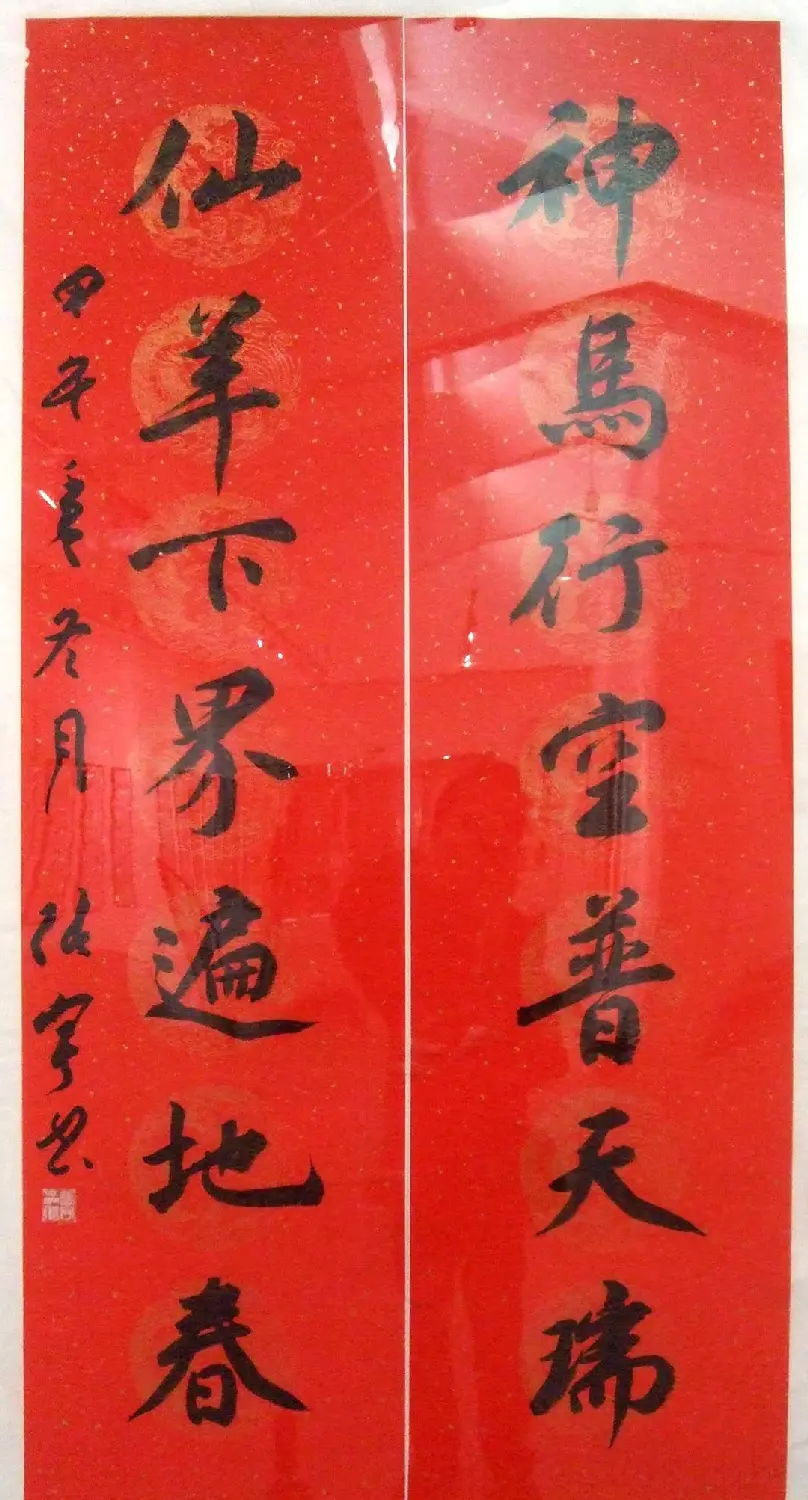 神馬行空普天瑞
仙羊下界遍地春
甲午年冬月 張宇书